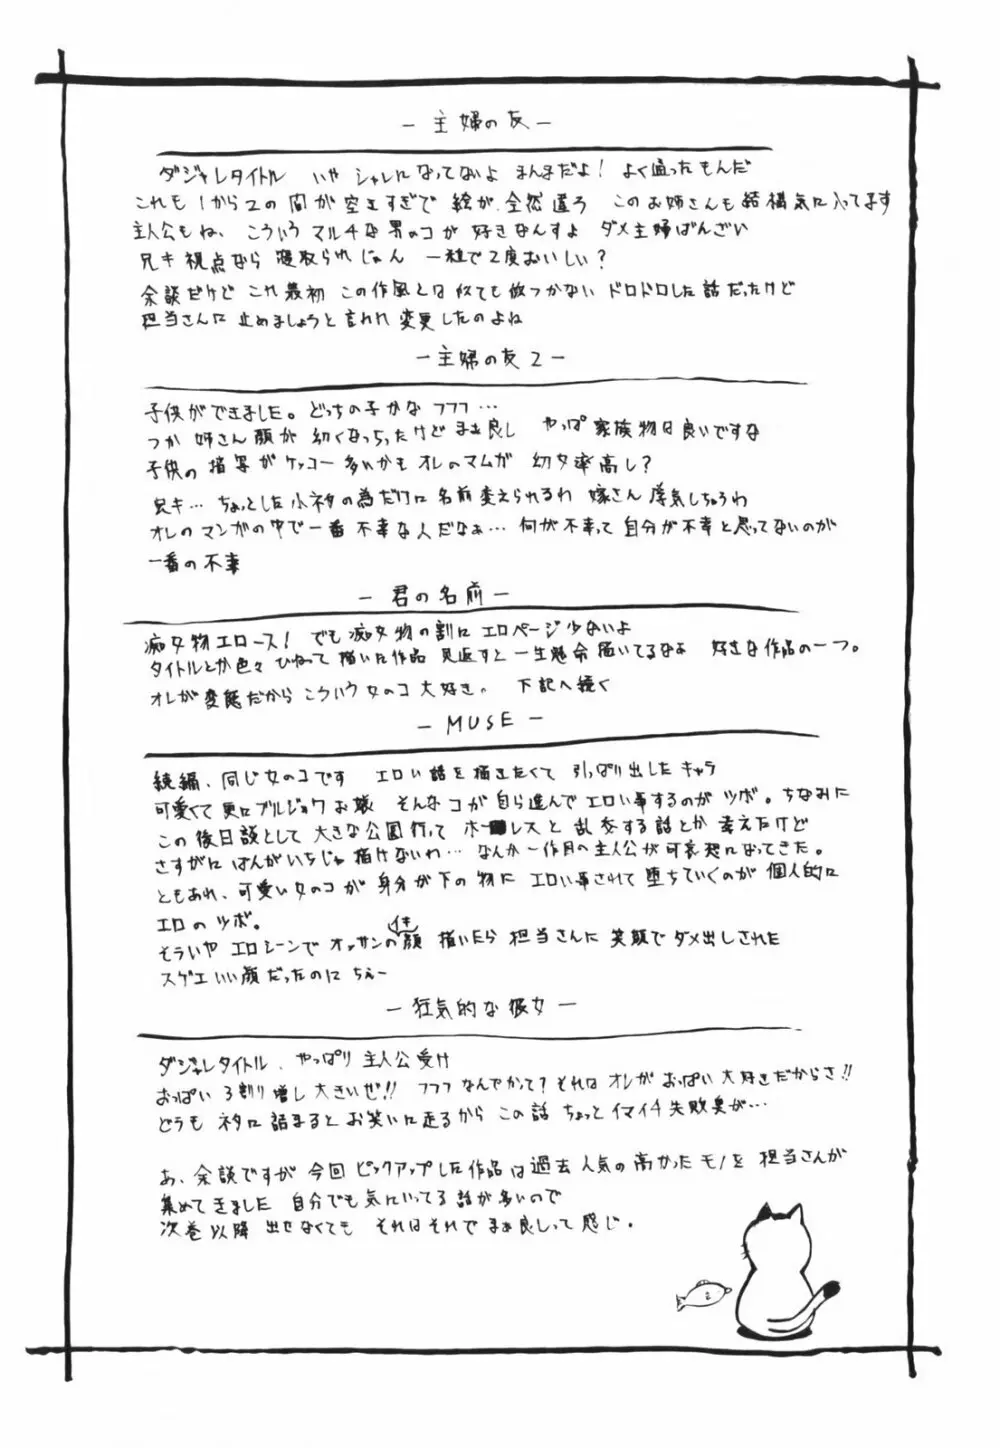 — 主婦の友 —
ダジャレタイトル いや シャレになってないよ まんまだよ! よく通ったもんだ
これも1から2の間が空きすぎで 絵が、全然違う このお姉さんも結構気に入ってます
主人公もね、こういう マルチな男のコが 好きなんすよ ダメ主婦ばんざい
兄キ視点なら 寝取られじゃん 一粒で2度おいしい?
余談だけど これ最初 この作風とは似ても似つかない ドロドロした話だったけど
担当さんに 止めましょうと言われ 変更したのよね
— 主婦の友 2 —
子供ができました。どっちの子かな フフフ…
つか 姉さん 顔が 幼くなっちったけど まぁ良し やっぱ 家族物は良いですな
子供の描写が ケッコー多いかも オレのマムガ 幼女率高し?
兄キ… ちょっとした小ネタの為だけに 名前変えられるわ 嫁さん 浮気しちゃうわ
オレのマンガの中で一番 不幸な人だなぁ… 何が不幸って 自分が不幸と思ってないのが
一番の不幸
— 君の名前 —
痴女物エロース! でも痴女物の割に エロページ少ないよ
タイトルとか色々 ひねって描いた作品 見返すと一生懸命描いてるなよ 好きな作品の一つ。
オレが変態だから こういう女のコ 大好き。 下記へ続く
— MUSE —
続編、同じ女のコです エロい話を描きたくて 引っぱり出したキャラ
可愛くて 更にブルジョワお嬢 そんなコが自ら進んでエロい事するのが ツボ。ちなみに
この後日談として 大きな公園行って ホ レスと 乱交する話とか 考えたけど
さすがに はんがいちじゃ描けないわ… なんか一作目の主人公が可哀想になってきた。
ともあれ、可愛い女のコが 身分が下の物に エロい事されて 堕ちていくのが 個人的に
エロのツボ。
そういや エロシーンで オッサンのイキ顔 描いたら 担当さんに 笑顔で ダメ出しされた
スゲエいい顔だったのに ちぇー
— 狂気的な彼女 —
ダジャレタイトル、やっぱり 主人公受け
おっぱい 3割り増し 大きいぜ!! フフフ なんでかって? それは オレが おっぱい 大好きだからさ!!
どうも ネタに 詰まると お笑いに走るから この話 ちょっとイマイチ失敗臭が…
あ、余談ですが 今回 ピックアップした作品は過去 人気の高かったモノを 担当さんが
集めてきました 自分でも気にいってる話が多いので
次巻以降 出せなくても それはそれで まぁ良しって 感じ。